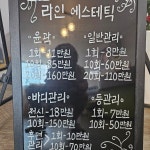 라인 에스테틱
윤곽
1회-11만원
10회-85만원
20회-160만원
일반관리
1회-8만원
10회-50만원
20회-110만원
바디관리
전신-18만원
10회-150만원
등관리
1회-10만원
10회-50만원
관리
10회-70만원